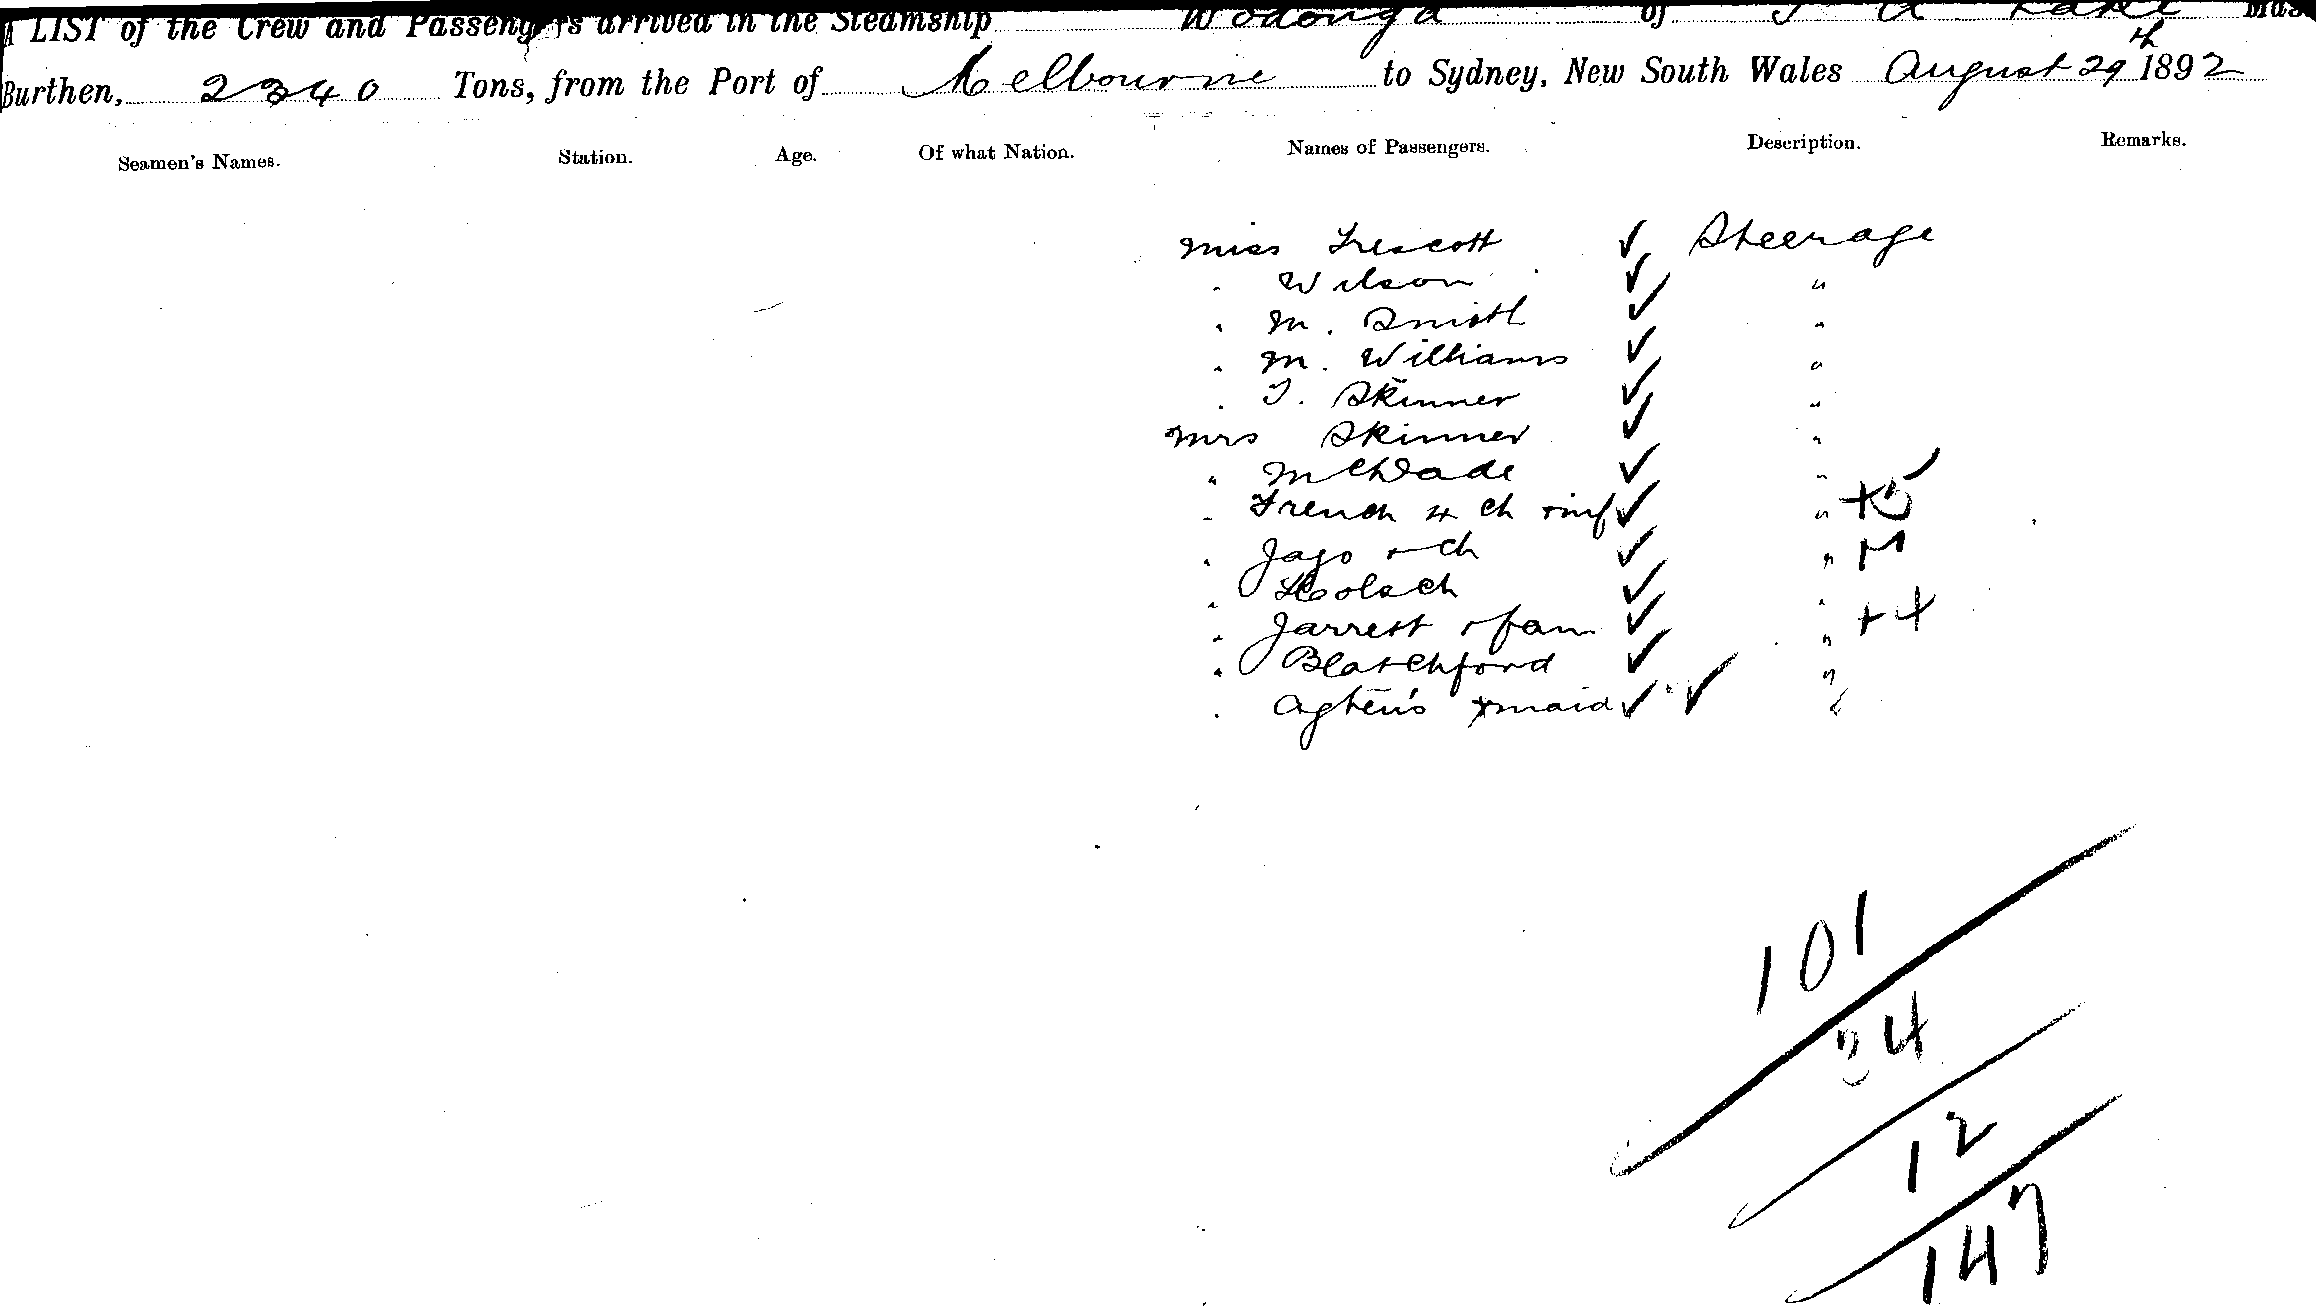 A LIST of the Crew and Passengers arrived in the Steamship Wodonga of
Burthen, 2340 Tons, from the Port of Melbourne to Sydney, New South Wales August 29th 1892
Seamen's Names. Station. Age. Of what Nation. Names of Passengers. Description. Remarks.
Miss Trescott ✓ Steerage
" Wilson ✓ "
" M. Smith ✓ "
" M. Williams ✓ "
" T. Skinner ✓ "
Mrs Skinner ✓ "
" McDade ✓ "
" French 4 ch + inf ✓ " +5
" Jago + ch ✓ " +1
" ✓ "
" Jarrett + fam ✓ " +4
" Blatchford ✓ "
" + maid ✓ ✓ "
101
34
12
147